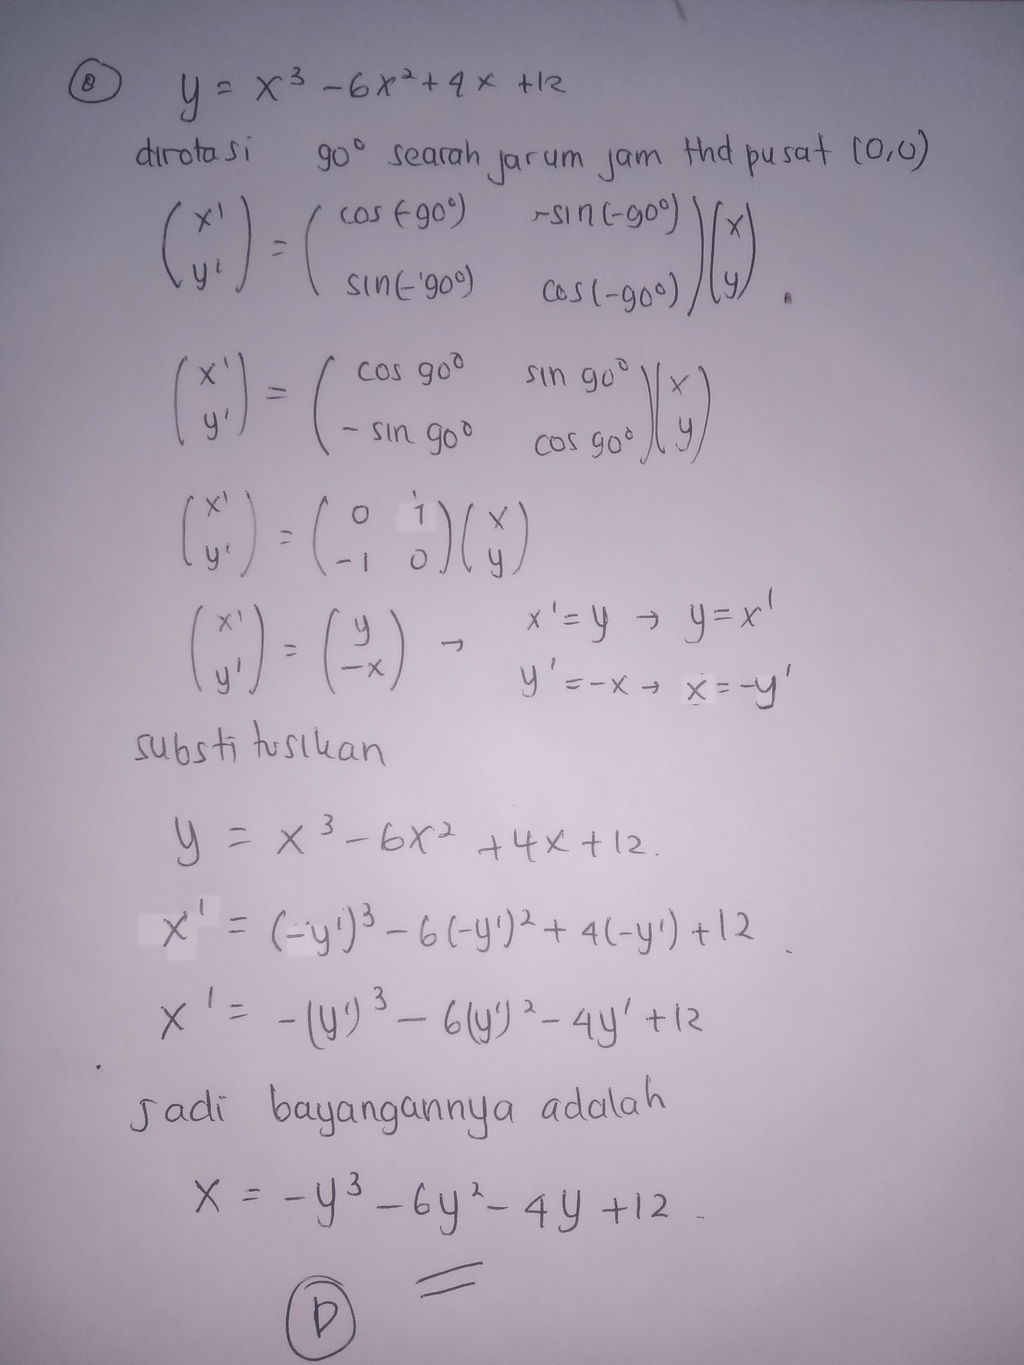 ⑧ y = x³ - 6x² + 4x + 12
dirotasi 90° searah jarum jam thd pusat (0,0)
(x' y') = (cos(-90°) -sin(-90°) sin(-90°) cos(-90°)) (x y)
(x' y') = (cos 90° sin 90° - sin 90° cos 90°) (x y)
(x' y') = (0 1 -1 0) (x y)
(x' y') = (y -x) → x' = y → y = x'
y' = -x → x = -y'
substitusikan
y = x³ - 6x² + 4x + 12.
x' = (-y')³ - 6(-y')² + 4(-y') + 12
x' = -(y')³ - 6(y')² - 4y' + 12
Jadi bayangannya adalah
x = -y³ - 6y² - 4y + 12
D